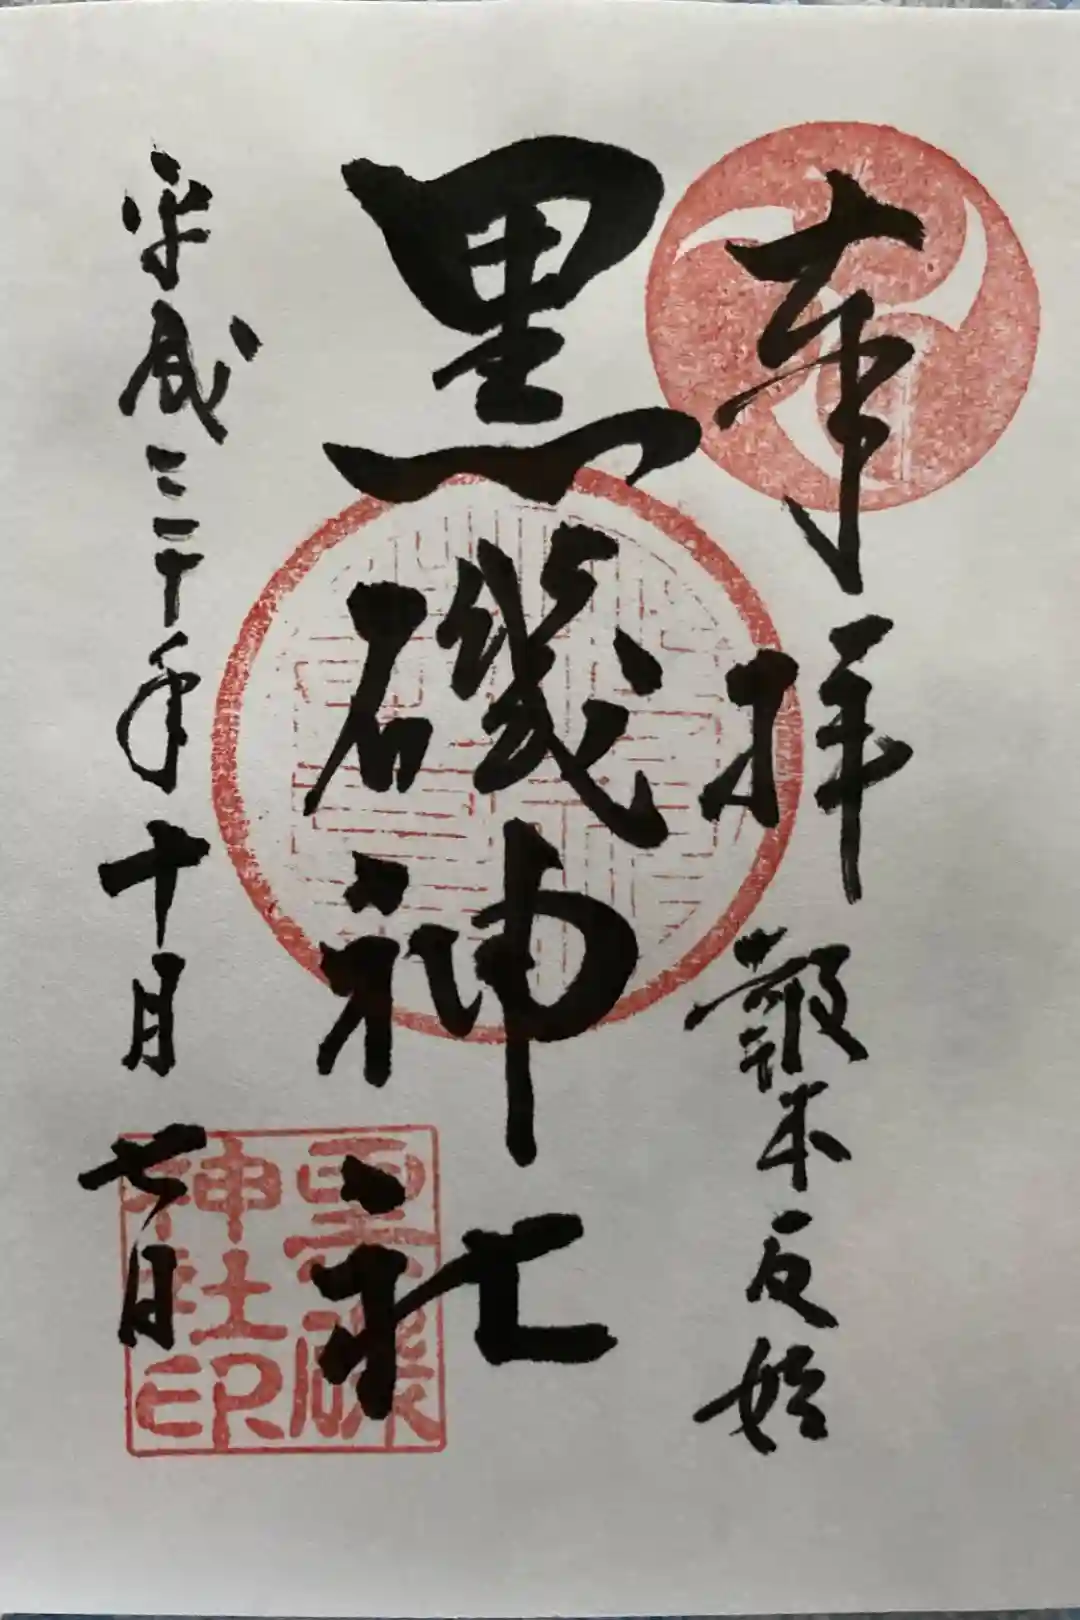 奉拝
報本反始
黒磯神社
黒磯
神社印
平成三十年十月七日